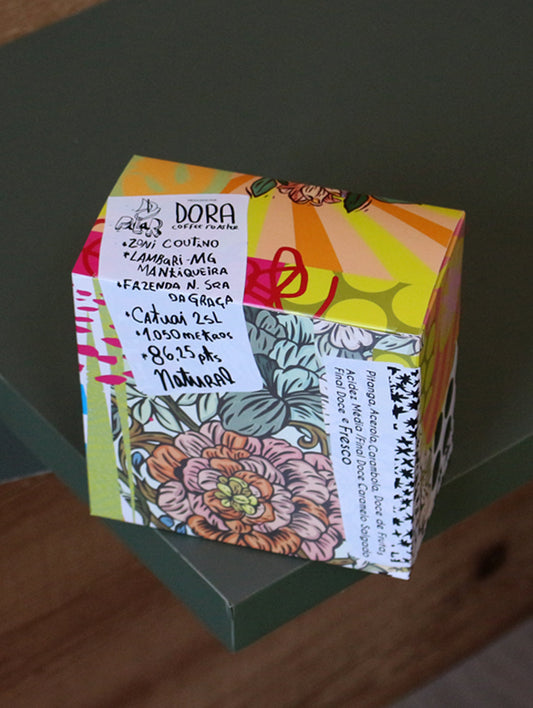 DORA
COFFEE ROASTER
•ZONI COUTINO
•LAMBARI-MG
MANTIQUEIRA
•FAZENDA N. SRA
DA GRAÇA
•CATUAI 2SL
•1.050 METROS
•86,25 pts
NATURAL
Pitanga, Acerola, Carambola, Doce de Frutas,
Acidez Média /Final Doce Caramelo Salgado
Final Doce e Fresco